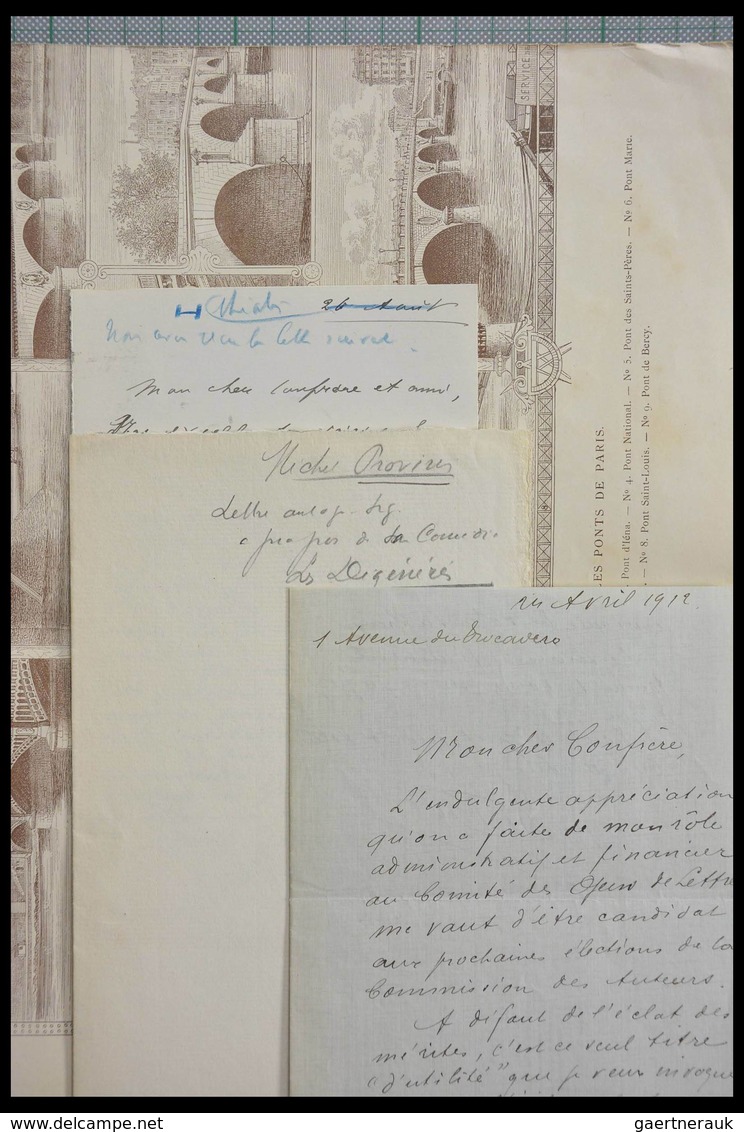 SERVICE
LES PONTS DE PARIS.
Pont d'Iéna. — Nº 4. Pont National. — Nº 5. Pont des Saints-Pères. — Nº 6. Pont Marie.
— Nº 8. Pont Saint-Louis. — Nº 9. Pont de Bercy.
26 Août
Mon cher confrère et ami,
Michel Provins
Lettre autog. sig.
à propos de sa Comédie
Les Dégénérés
24 Avril 1912.
1 Avenue du Trocadero
Mon cher Confrère,
L'indulgente appréciation
qu'on a faite de mon rôle
administratif et financier
au Comité des Gens de Lettre
me vaut d'être candidat
aux prochaines élections de la
Commission des Auteurs.
A défaut de l'éclat des
mérites, c'est ce seul titre
"d'utilité" que je veux invoque
gaertnerauk@gmail.com